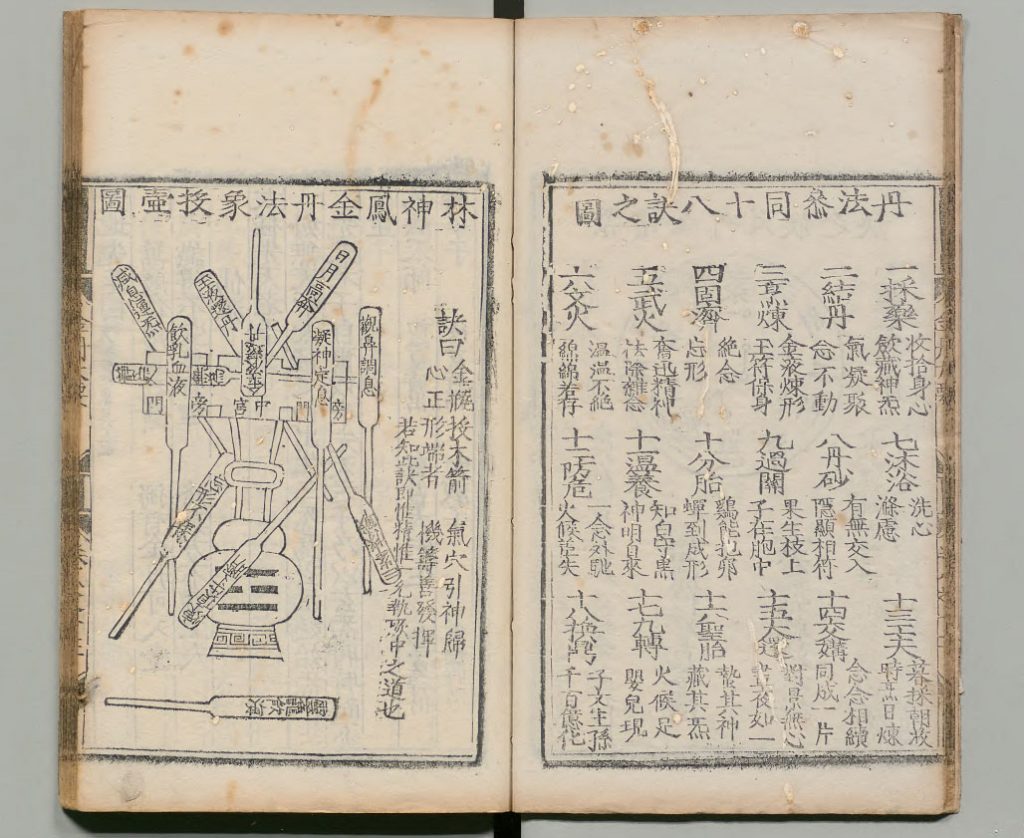 丹法叅同十八訣之圖
一採藥
收拾身心
斂藏神炁
二結丹
氣凝聚
念不動
三烹煉
金液煉形
玉符保身
四固濟
絶念
忘形
五武火
奮迅精神
祛除雜念
六文火
溫溫不絶
綿綿若存
七沐浴
洗心
滌慮
八丹砂
有無交入
隱顯相符
九過關
果生枝上
子在胞中
十分胎
鷄能抱卵
蟬到成形
十一溫養
知白守黑
神明自來
十二防危
一念外馳
火候差失
十三工夫
暮採朝收
時烹日煉
十四交媾
念念相續
同成一片
十五大還
對景無心
晝夜如一
十六聖胎
蟄其神
藏其炁
十七九轉
火候足
嬰兒現
十八換鼎
子又生孫
千百億化
林神鳳金丹法象投壺圖
訣曰
金瓶投木箭
氣穴引神歸
心正形端者
機籌善發揮
若知此訣即惟精惟一允執厥中之道也
觀鼻調息
日月高奔
凝神定息
飲乳血液
中宮
旁門
旁門